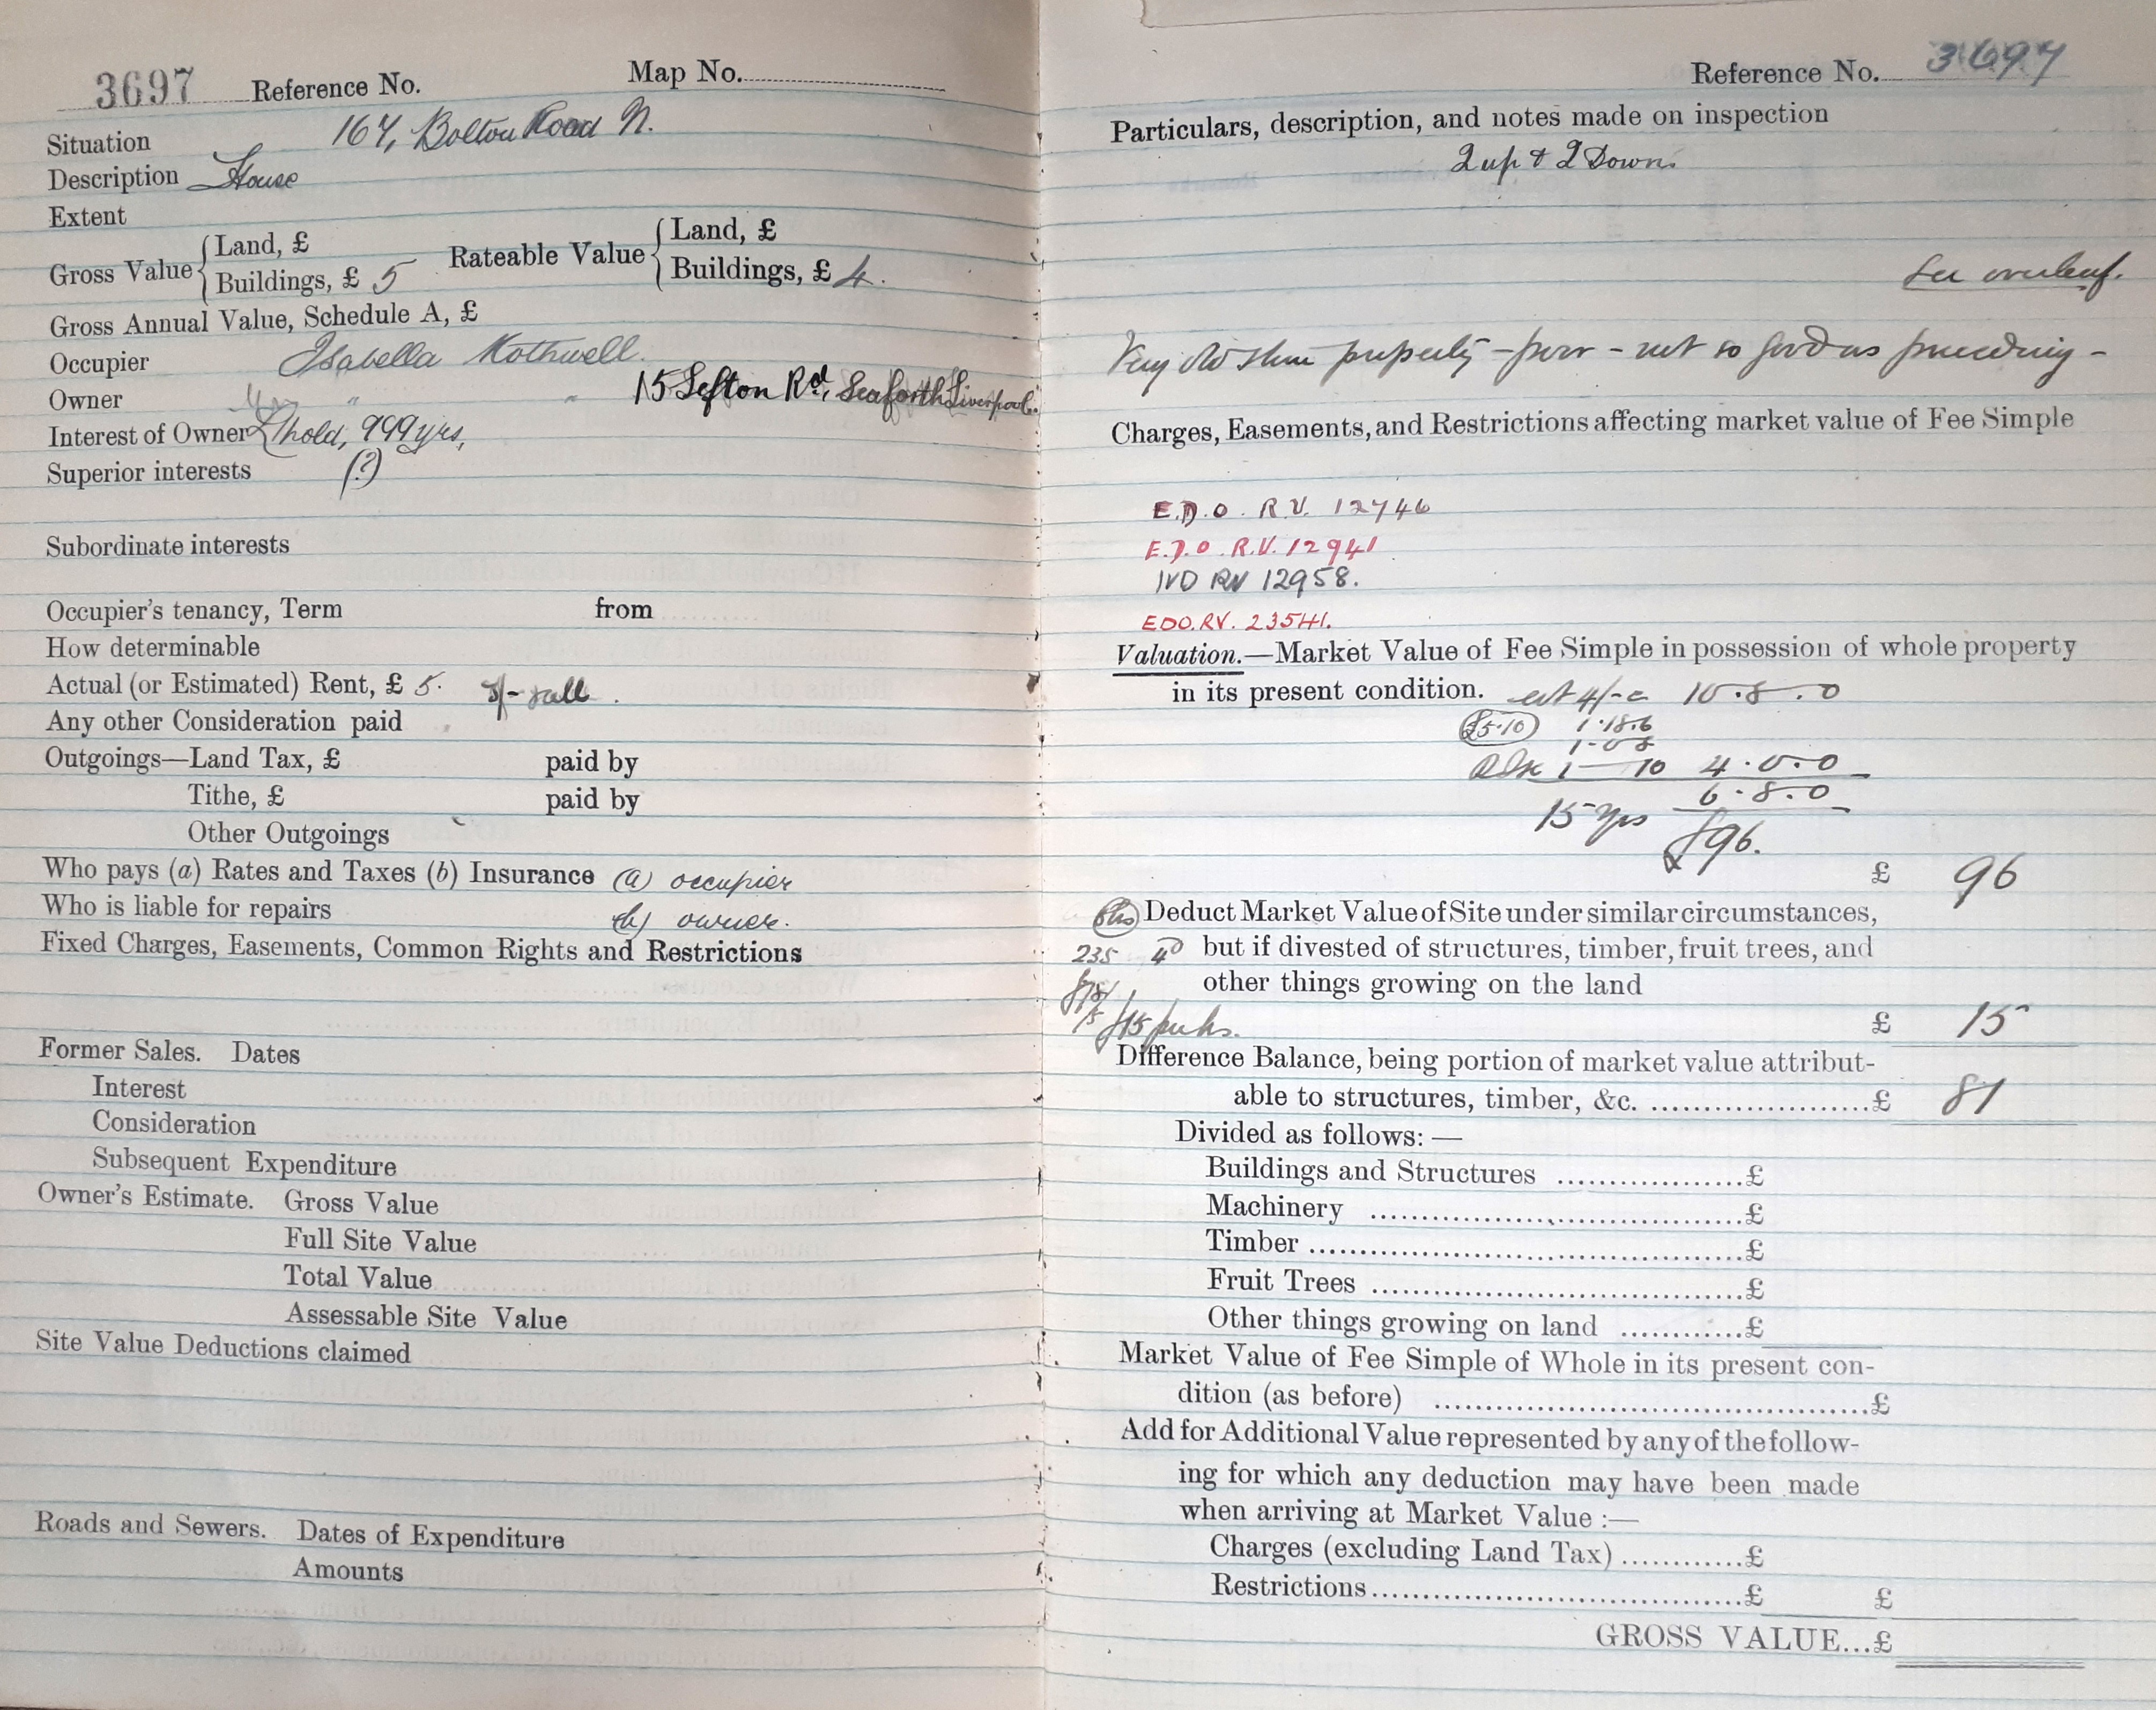 3697 Reference No. Map No.
Situation 167, Bolton Road N.
Description House
Extent
Gross Value { Land, £
Buildings, £ 5
Rateable Value { Land, £
Buildings, £ 4.
Gross Annual Value, Schedule A, £
Occupier Isabella Rothwell.
Owner " " 15 Sefton Rd, Seaforth Liverpool.
Interest of Owner L'hold, 999 yrs,
Superior interests (?)
Subordinate interests
Occupier's tenancy, Term from
How determinable
Actual (or Estimated) Rent, £ 5.
Any other Consideration paid
Outgoings—Land Tax, £ paid by
Tithe, £ paid by
Other Outgoings
Who pays (a) Rates and Taxes (b) Insurance (a) occupier
Who is liable for repairs (b) owner.
Fixed Charges, Easements, Common Rights and Restrictions
Former Sales. Dates
Interest
Consideration
Subsequent Expenditure
Owner's Estimate. Gross Value
Full Site Value
Total Value
Assessable Site Value
Site Value Deductions claimed
Roads and Sewers. Dates of Expenditure
Amounts
Reference No. 3697
Particulars, description, and notes made on inspection
2 up & 2 Down.
See overleaf.
Very old stone property – poor – not so good as preceding –
Charges, Easements, and Restrictions affecting market value of Fee Simple
E.D.O. R.V. 12746
E.D.O. R.V. 12941
IVD RV 12958.
EDO. RV. 23541.
Valuation.—Market Value of Fee Simple in possession of whole property
in its present condition. est 4/- 10.8.0
£5.10 1.18.6
1 – 10 4.0.0
6.8.0
15 yrs £96.
£ 96
Deduct Market Value of Site under similar circumstances,
235 but if divested of structures, timber, fruit trees, and
other things growing on the land
£15
£ 15
Difference Balance, being portion of market value attribut-
able to structures, timber, &c. ......................£ 81
Divided as follows: —
Buildings and Structures ..................£
Machinery ..................................£
Timber ........................................£
Fruit Trees ..................................£
Other things growing on land ............£
Market Value of Fee Simple of Whole in its present con-
dition (as before) ..........................................£
Add for Additional Value represented by any of the follow-
ing for which any deduction may have been made
when arriving at Market Value :—
Charges (excluding Land Tax) ............£
Restrictions ....................................£ £
GROSS VALUE...£